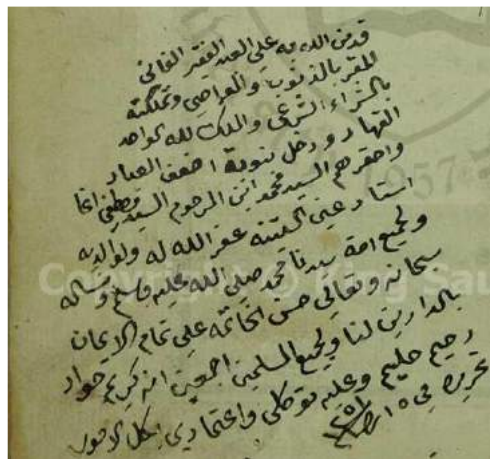 قد من الله به على العبد الفقير الفاني
المقر بالذنوب والمعاصي وتملكته
بالشراء الشرعي والملك لله الواحد
القهار ودخل بنوبة اضعف العباد
واحقرهم السيد محمد ابن المرحوم السيد مصطفى اغا
استاد عيني الحقته غفر الله له ولوالديه
ولجميع امة سيدنا محمد صلى الله عليه وسلم ونساله
سبحانه وتعالى حسن الخاتمة على تمام الايمان
بالدارين لنا ولجميع المسلمين اجمعين انه كريم جواد
رحيم حليم وعليه توكلي واعتمادي بكل الامور
تحريرا في ١٥
Copyright © King Sau
1957